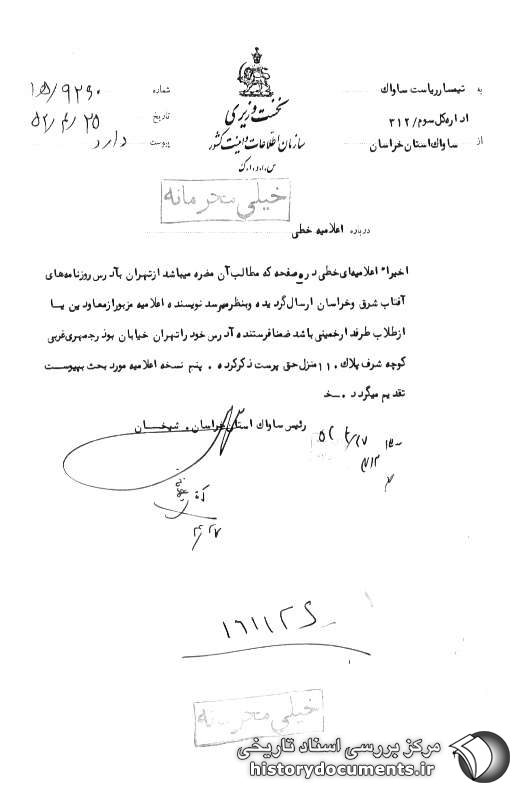 به تیمسار ریاست ساواک
اداره کل سوم / ۳۱۲
از ساواک استان خراسان
نخست وزیری
سازمان اطلاعات و امنیت کشور
س.ا.و.ا.ک
شماره
تاریخ ۵۲/۴/۲۵
پیوست دارد
خیلی محرمانه
درباره اعلامیه خطی
اخیراً اعلامیه‌ای خطی در صفحه که مطالب آن مضره میباشد از تهران بآدرس روزنامه‌های
آفتاب شرق و خراسان ارسال گردیده و بنظر میرسد نویسنده اعلامیه مزبور از معاودین یا
از طلاب طرفدار خمینی باشد ضمنا فرستنده آدرس خود را تهران خیابان بوذرجمهری غربی
کوچه شرف پلاک ۱۱۰ منزل حق پرست ذکر کرده . پنج نسخه اعلامیه مورد بحث به پیوست
تقدیم میگردد . خ
رئیس ساواک استان خراسان . شیخان
۱۶۱۱۲۶
خیلی محرمانه
مرکز بررسی اسناد تاریخی
historydocuments.ir